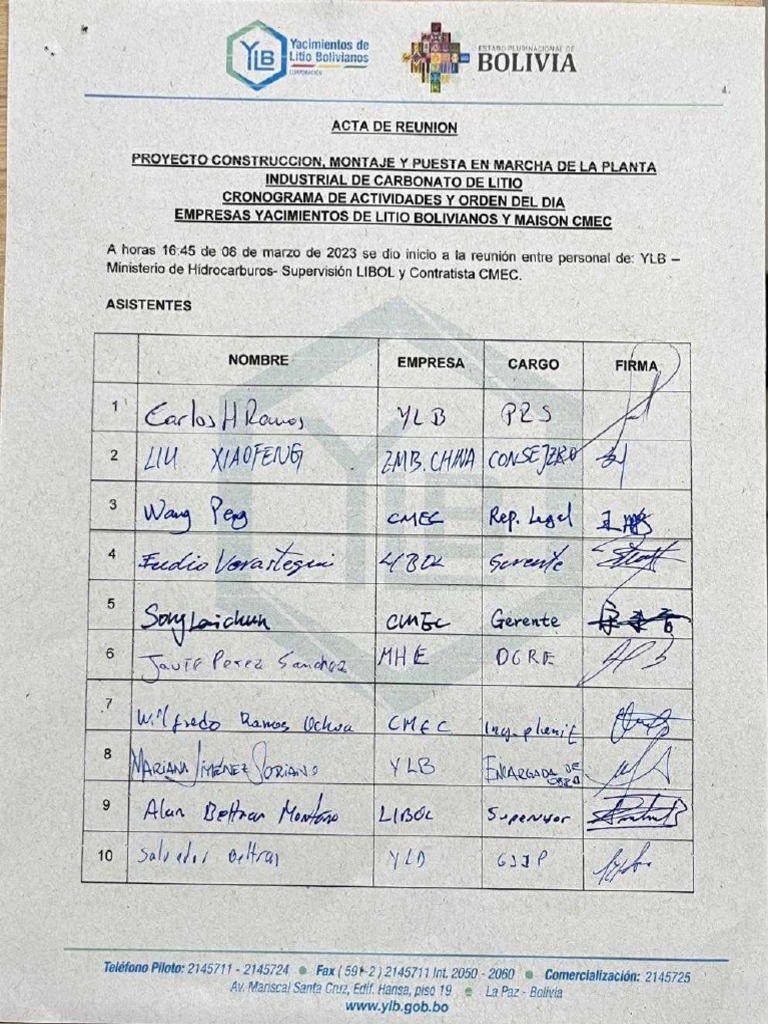 YLB
Yacimientos de
Litio Bolivianos
CORPORACIÓN
ESTADO PLURINACIONAL DE
BOLIVIA
ACTA DE REUNION
PROYECTO CONSTRUCCION, MONTAJE Y PUESTA EN MARCHA DE LA PLANTA
INDUSTRIAL DE CARBONATO DE LITIO
CRONOGRAMA DE ACTIVIDADES Y ORDEN DEL DIA
EMPRESAS YACIMIENTOS DE LITIO BOLIVIANOS Y MAISON CMEC
A horas 16:45 de 08 de marzo de 2023 se dio inicio a la reunión entre personal de: YLB –
Ministerio de Hidrocarburos- Supervisión LIBOL y Contratista CMEC.
ASISTENTES
NOMBRE EMPRESA CARGO FIRMA
1 Carlos H Ramos YLB PRS
2 LIU XIAOFENG EMB. CHINA CONSEJERO
3 Wang Peng CMEC Rep. Legal
4 Eudio Verastegui LIBOL Gerente
5 Song Laichun CMEC Gerente
6 Javier Perez Sanchez MHE DGRE
7 Wilfredo Ramos Ochoa CMEC Ing. planif
8 MARIANA JIMÉNEZ SORIANO YLB ENCARGADA DE OBRA
9 Alan Beltran Montaño LIBOL Supervisor
10 Salvador Beltran YLB
Teléfono Piloto: 2145711 - 2145724 Fax ( 591-2 ) 2145711 Int. 2050 - 2060 Comercialización: 2145725
Av. Mariscal Santa Cruz, Edif. Hansa, piso 19 La Paz - Bolivia
www.ylb.gob.bo